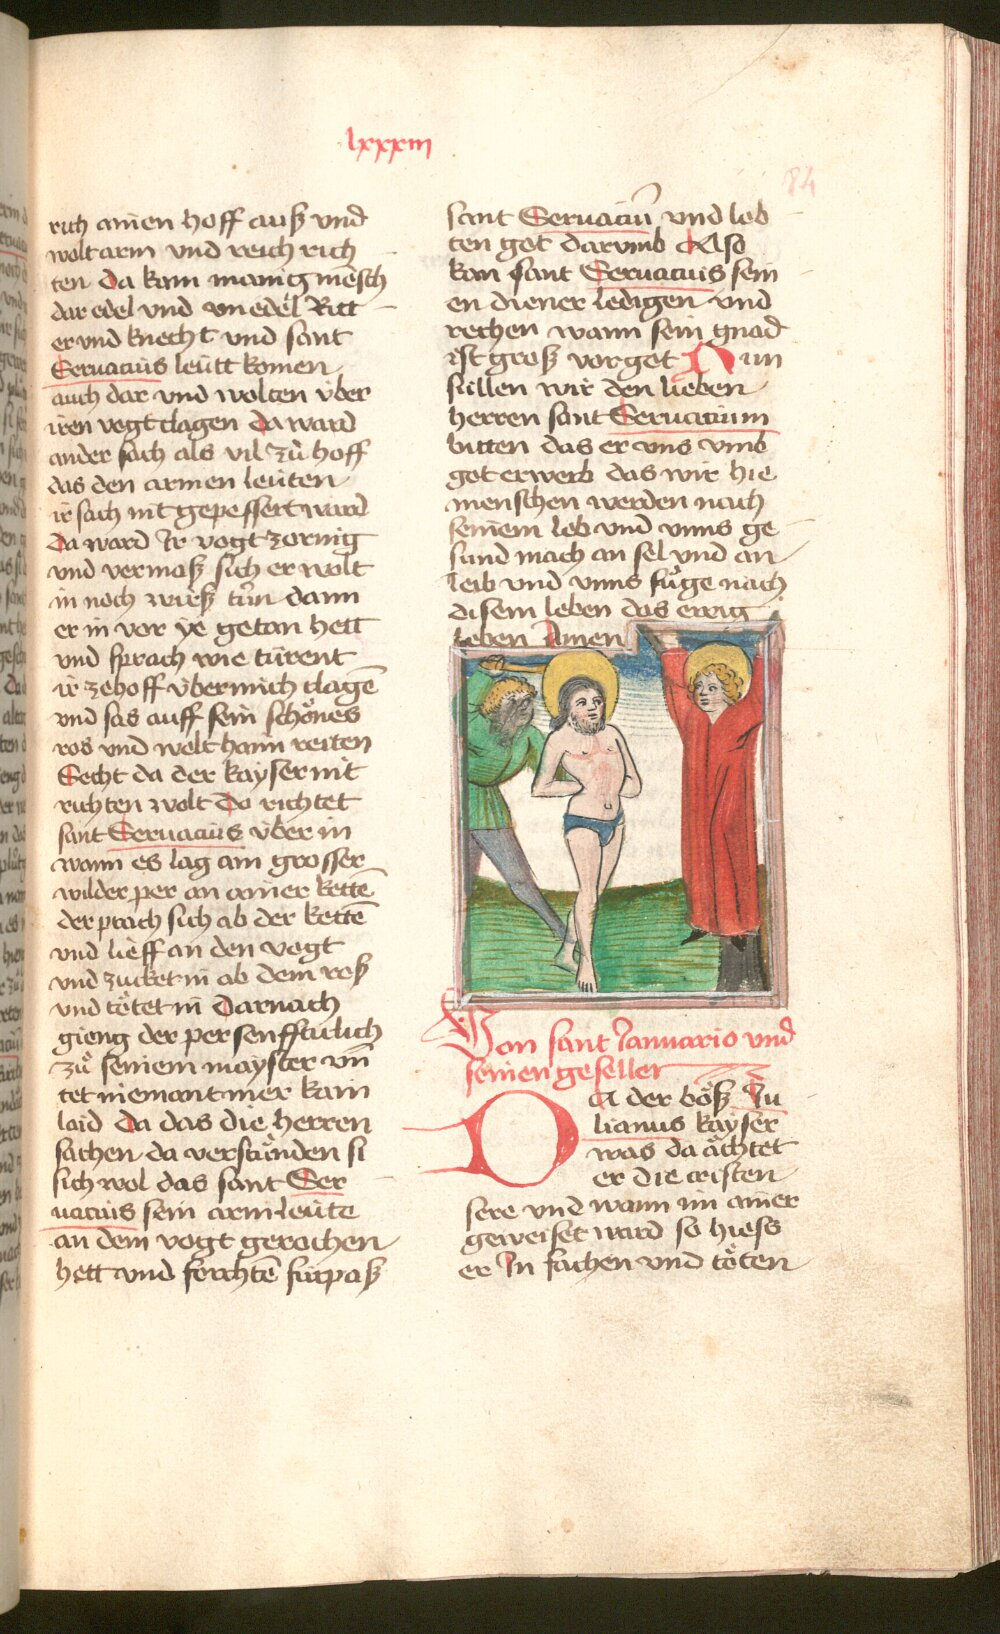 lxxxiii
84
rich ainen hoff auß vnd
wolt arm vnd reich rich
ten Da kam manig mēsch
dar edel vnd vnedel Ritt
er vnd knecht vnd sant
Seruacius leütt komen
auch dar vnd wolten vber
iren vogt clagen Da ward
ander sach als vil zů hoff
das den armen leüten
ir sach nit gepessert ward
Da ward Ir vogt zornig
vnd vermaß sich er wolt
in noch wirß tůn dann
er in vor ye getan hett
vnd sprach wie türent
ir ze hoff v̈ber mich clagē
vnd sas auff sein schönes
ros vnd wolt haim reiten
Secht da der kayser nit
richten wolt Do richtet
sant Seruacius v̈ber in
wann es lag ain grosser
wilder per an ainer kettē
der prach sich ab der kettē
vnd lieff an den vogt
vnd zucket in ab dem roß
vnd tötet in Darnach
gieng der per senffticlich
zů seinem mayster vn̄
tet niemant mer kain
laid Da das die herren
sachen da verstůnden si
sich wol das sant Ser
uacius sein arm leüte
an dem vogt gerochen
hett vnd forchtē fürpaß
sant Seruaciū vnd lob
ten got darumb Also
kan sant Seruacius sein
en diener ledigen vnd
rechen wann sein gnad
ist groß vor got Nun
süllen wir den lieben
herren sant Seruacium
bitten das er vns vmb
got erwerb das wir hie
menschen werden nach
seinem lob vnd vnns ge
sund mach an sel vnd an
leib vnd vnns fůge nach
disem leben das ewig
leben Amen
Von sant Ianuario vnd
seinen gesellen
Da der böß Iu
lianus kayser
was da ächtet
er die cristen
sere vnd wann im ainer
geweiset ward so hiess
er In fachen vnd töten